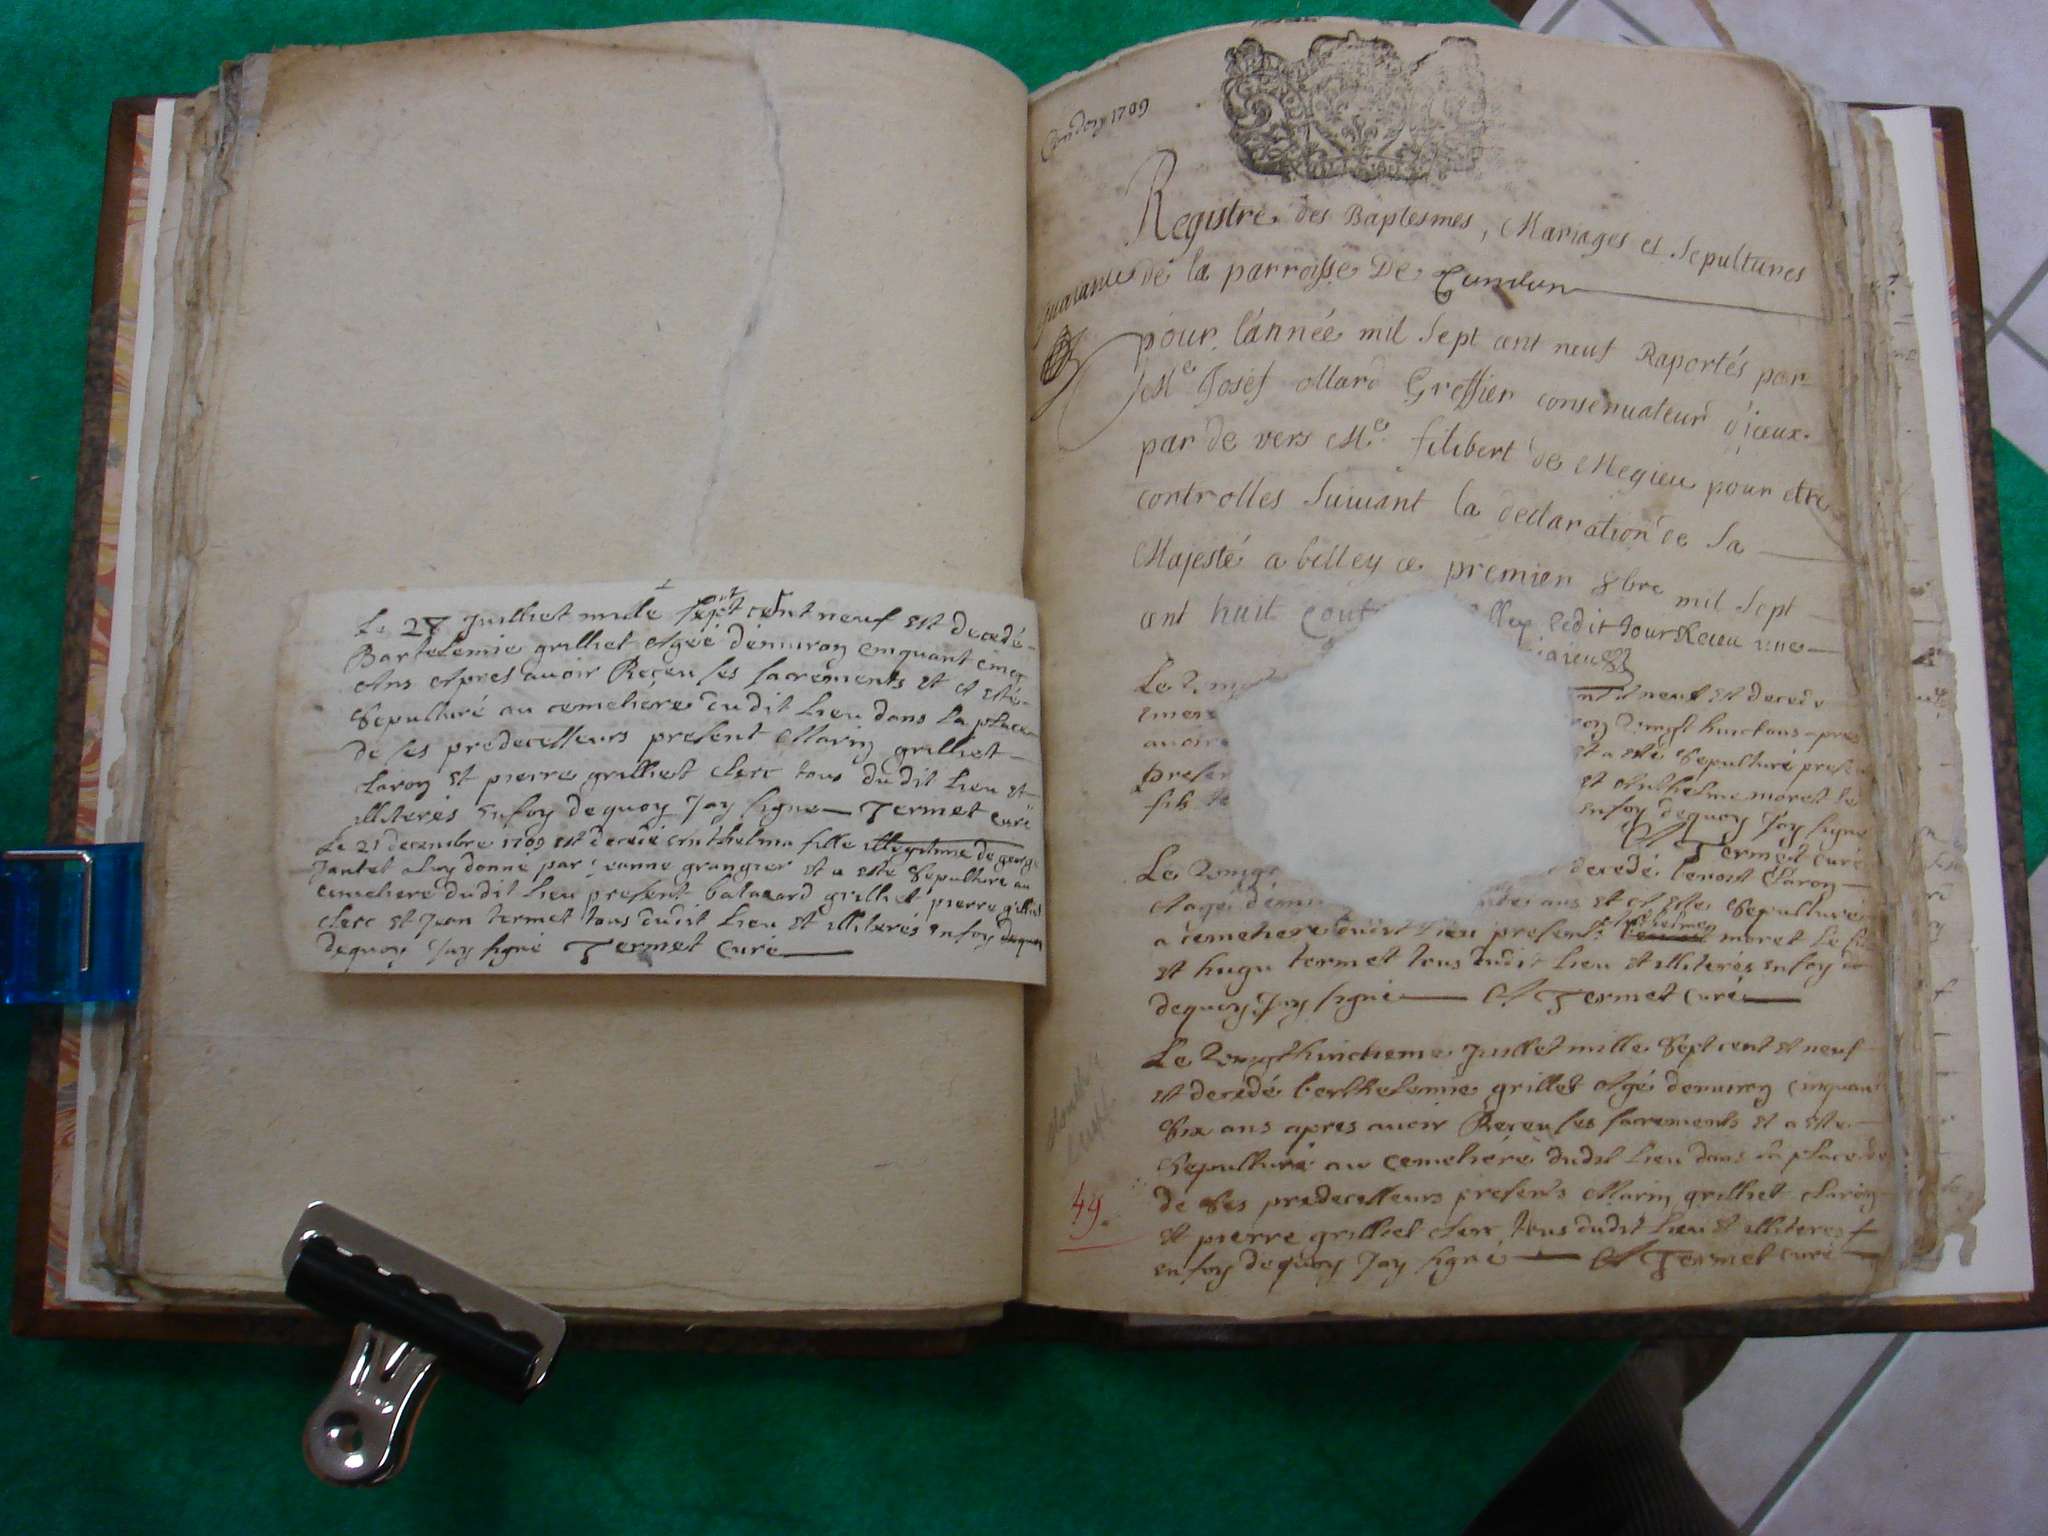 Le 28 Juilliet mile sept cent neuf est decedé
Bartelemie grilliet Agée denuiron cinquant cinq
Ans Apres auoir Reçeu les sacrements et A esté
Sepulturé au cemetiere dudit Lieu dans la place
de ses predecesseurs present Marin grilliet
Claron et pierre grilliet clerc tous dudit Lieu et
illiterés en foy dequoy Jay signe Termet curé
Le 21 decembre 1709 est decedé Anthelma fille illegitime de george
Jantet a luy donné par jeanne grangier et a esté Sepulturé au
cemetiere dudit Lieu present balazard grilliet pierre grilliet
clerc et Jean termet tous dudit Lieu et illiterés en foy dequoy
dequoy Jay signé Termet Curé
Condon 1709
Registre des Baptesmes, Mariages et Sepultures
quarante
de la parroisse De Cundun
pour l'année mil sept cent neuf Raportés par
Me Josef Mard Greffier conseruateur d'iceux
par de vers Me filibert de Megieu pour etre
controlles suiuant la declaration de Sa
Majesté a belley ce premier 8bre mil sept
cent huit ledit jour Receu
Le
neuf est decede
auoir
et a esté Sepulturé
presen
et Anthelme moret le
fils
en foy dequoy Jay signe
A Termet curé
Le decedé benoit Claron
Agé ans et A esté Sepulturé
a cemetiere dudit Lieu present Anthelme moret le
et hugu termet tous dudit Lieu et illiterés en foy de
dequoy Jay signé A Termet Curé
Le vingthuictieme Juillet mille Sept cent et neuf
est decédé berthelemie grillet Agé denuiron cinquant
Six ans apres auoir Reçeu les sacrements et a este
Sepulturé au Cemetiere dudit Lieu dans la place de
de Ses predecesseurs presents Marin grilliet Claron
49.
et pierre grilliet clerc tous dudit Lieu et illiteres
en foy dequoy Jay signé A Termet curé